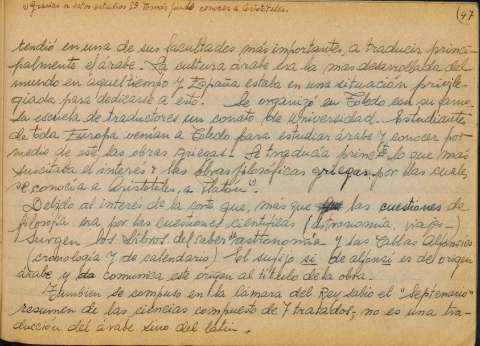 1) Gracias a estos estudios Sto Tomás pudo conocer a Aristóteles.
47
tendió en una de sus facultades más importantes, a traducir princi-
palmente el árabe. La cultura árabe era la mas desarrollada del
mundo en aquel tiempo y España estaba en una situación privile-
giada para dedicarse a esto. Se organizó en Toledo con su fama
la escuela de traductores un conato de Universidad. Estudiantes
de toda Europa venian a Toledo para estudiar árabe y conocer por
medio de este las obras griegas. Se traducía princ. lo que más
suscitaba el interés: las obras filosóficas griegas por las cuales
se conocía a Aristóteles, a Platón
Debido al interés de la corte que, más que las cuestiones de
filosofía, era por las cuestiones científicas (astronomía, viajes...)
surgen los Libros del saber astronomía y las Tablas Alfonsíes
(cronología y de calendario) El sufijo sí de alfonsí es del origen
árabe y da comunica este origen al título de la obra.
Tambien se compuso en la Cámara del Rey sabio el "Septenario"
resumen de las ciencias compuesto de 7 tratados; no es una tra-
ducción del árabe sino del latín.